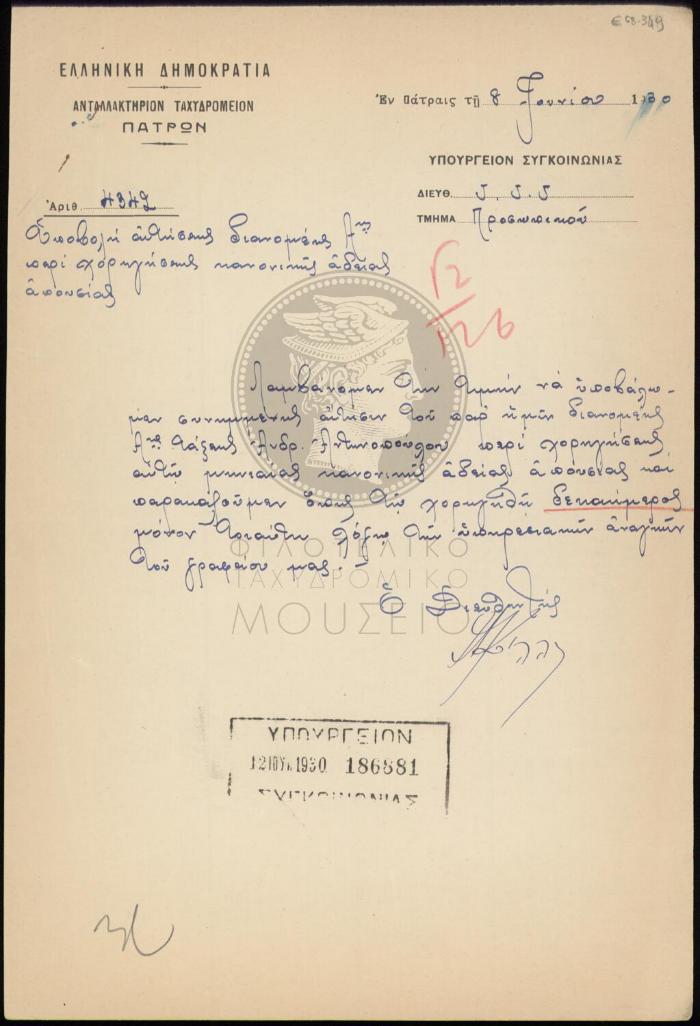 Ε 68-349
ΕΛΛΗΝΙΚΗ ΔΗΜΟΚΡΑΤΙΑ
ΑΝΤΑΛΛΑΚΤΗΡΙΟΝ ΤΑΧΥΔΡΟΜΕΙΟΝ
ΠΑΤΡΩΝ
Ἐν Πάτραις τῇ 8 Ἰουνίου 1930
ΥΠΟΥΡΓΕΙΟΝ ΣΥΓΚΟΙΝΩΝΙΑΣ
ΔΙΕΥΘ. Τ.Τ.Τ
ΤΜΗΜΑ Προσωπικοῦ
Ἀριθ. 4342
Ὑποβολὴ αἰτήσεως διανομέως Αης
περὶ χορηγήσεως κανονικῆς ἀδείας
ἀπουσίας
Λαμβάνομεν τὴν τιμὴν νὰ ὑποβάλω-
μεν συνημμένως αἴτησιν τοῦ παρ' ἡμῖν διανομέως
Αης τάξεως Ἀνδρ. Ἀντωνοπούλου περὶ χορηγήσεως
αὐτῷ μηνιαίας κανονικῆς ἀδείας ἀπουσίας καὶ
παρακαλοῦμεν ὅπως τῷ χορηγηθῇ δεκαήμερος
μόνον τοιαύτη λόγῳ τῶν ὑπηρεσιακῶν ἀναγκῶν
τοῦ γραφείου μας.
ΦΙΛΟΤΕΛΙΚΟ
ΤΑΧΥΔΡΟΜΙΚΟ
ΜΟΥΣΕΙΟ
Ὁ Διευθυντής
ΥΠΟΥΡΓΕΙΟΝ
12 ΙΟΥΝ. 1930 186881
ΣΥΓΚΟΙΝΩΝΙΑΣ